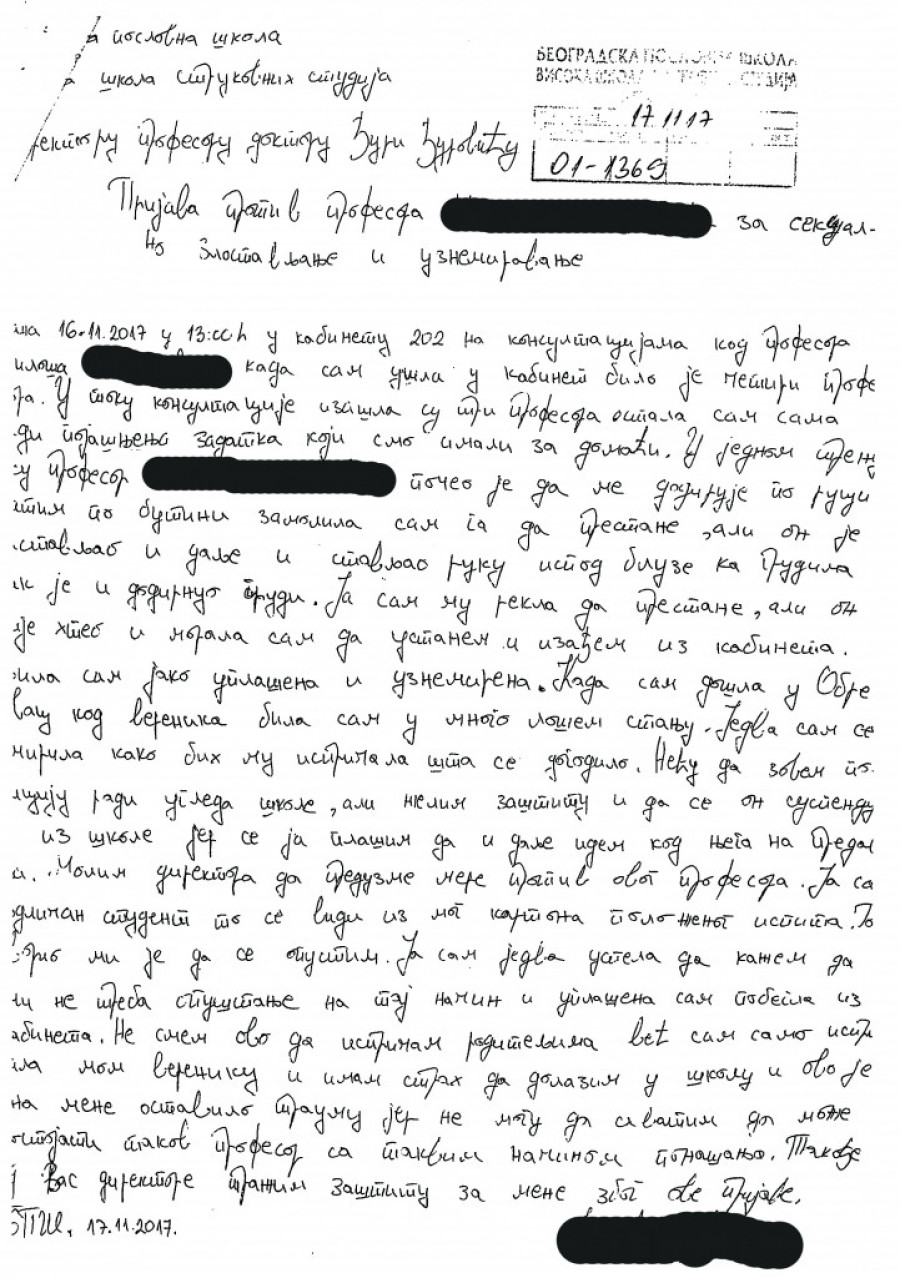 а пословна школа
а школа струковних студија
ректору професору доктору Ђури Ђуровићу
БЕОГРАДСКА ПОСЛОВНА ШКОЛА
ВИСОКА ШКОЛА СТУДИЈА
17 11 17
01-1369
Пријава против професора за сексуал-
но злостављање и узнемиравање
на 16.11.2017 у 13:00 h у кабинету 202 на консултацијама код професора
илоша када сам ушла у кабинет било је четири профе
ра. У току консултације изашла су три професора остала сам сама
ди појашњења задатка који смо имали за домаћи. У једном трену
ку професор почео је да ме додирује по руци
тим по бутини замолила сам га да престане, али он је
стављао и даље и стављао руку испод блузе ка грудима
к је и додирнуо груди. Ја сам му рекла да престане, али он
ије хтео и морала сам да устанем и изађем из кабинета.
ила сам јако уплашена и узнемирена. Када сам дошла у Обре
вац код вереника била сам у много лошем стању. Једва сам се
мирила како бих му испричала шта се догодило. Нећу да зовем по
лицију ради угледа школе, али желим заштиту и да се он суспенду
из школе јер се ја плашим да и даље идем код њега на предав
а. Молим директора да предузме мере против овог професора. Ја са
одличан студент то се види из мог картона положеног испита. Го
орио ми је да се опустим. Ја сам једва успела да кажем да
ми не треба опуштање на тај начин и уплашена сам побегла из
абинета. Не смем ово да испричам родитељима већ сам само испр
ила мом веренику и имам страх да долазим у школу и ово је
на мене оставило трауму јер не могу да схватим да може
остојати таков професор са таквим начином понашања. Такође
Вас директоре тражим заштиту за мене због ове пријаве.
БПШ, 17.11.2017.